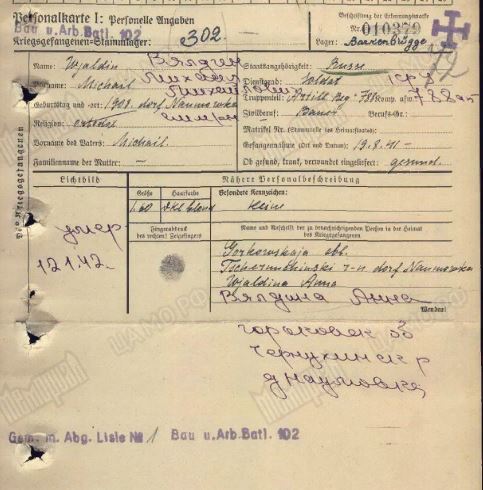 Personalkarte I: Personelle Angaben
Bau u. Arb. Batl. 102
Kriegsgefangenen-Stammlager: 302.
Beschriftung der Erkennungsmarke
Nr. 010379
Lager: Barkenbrügge
Name: Wjaldin Вялдин
Vorname: Michail Михаил
Михайлович
Geburtstag und -ort: 1908 dorf Naumowka
Religion: ortod.
Vorname des Vaters: Michail
Familienname der Mutter: —
Staatsangehörigkeit: Russe
Dienstgrad: Soldat
Truppenteil: Artill. Reg. 788 Komp. usw.: 788 ап
Zivilberuf: Bauer Berufs-Gr.:
Matrikel Nr. (Stammrolle des Heimatstaates):
Gefangennahme (Ort und Datum): 19.8.41 –
Ob gesund, krank, verwundet eingeliefert: gesund.
Des Kriegsgefangenen
Lichtbild
Nähere Personalbeschreibung
Größe Haarfarbe Besondere Kennzeichen:
1.60 dkl. blond Keine
Fingerabdruck
des rechten! Zeigefingers
Name und Anschrift der zu benachrichtigenden Person in der Heimat
des Kriegsgefangenen
умер
12.1.42.
Gorkowskaja obl.
Tschernuchinski r-n dorf Naumowka
Wjaldina Anna
Вялдина Анна
Wenden!
Горьковск об
Чернухинск р
д Наумовка
Gem. m. Abg. Liste № 1 Bau u. Arb. Batl. 102
ЦАМО РФ